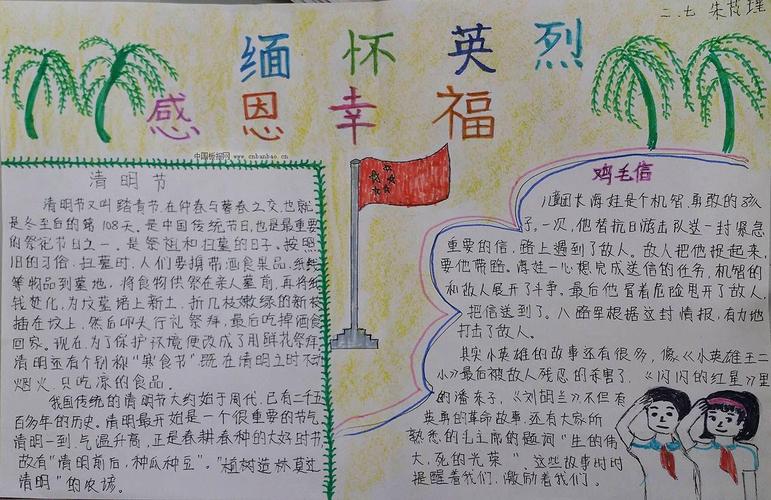 二.七 朱
缅怀英烈
感恩幸福
中国板报网 www.cnbanbao.cn
清明节
清明节又叫踏青节,在仲春与暮春之交,也就
是冬至后的第108天。是中国传统节日,也是最重要
的祭祀节日之一,是祭祖和扫墓的日子。按照
旧的习俗,扫墓时,人们要携带酒食果品,纸钱
等物品到墓地,将食物供祭在亲人墓前,再将纸
钱焚化,为坟墓培上新土,折几枝嫩绿的新枝
插在坟上,然后叩头行礼祭拜,最后吃掉酒食
回家。现在,为了保护环境便改成了用鲜花祭拜
清明还有个别称“寒食节”既在清明之时不动
烟火,只吃凉的食品。
我国传统的清明节大约始于周代,已有二千五
百多年的历史。清明最开始是一个很重要的节气,
清明一到,气温升高,正是春耕春种的大好时节,
故有“清明前后,种瓜种豆”。“植树造林莫过
清明”的农谚。
鸡毛信
儿童团长海娃是个机智、勇敢的孩
子。一次,他替抗日游击队送一封紧急
重要的信,路上遇到了敌人。敌人把他捉起来,
要他带路。海娃一心想完成送信的任务,机智的
和敌人展开了斗争。最后他冒着危险甩开了敌人,
把信送到了。八路军根据这封情报,有力地
打击了敌人。
其实小英雄的故事还有很多,像《小英雄王二
小》最后被敌人残忍的杀害了。《闪闪的红星》里
的潘冬子,《刘胡兰》不但有
英勇的革命故事,还有大家所
熟悉的毛主席的题词“生的伟
大,死的光荣”,这些故事时时
提醒着我们,激励着我们。